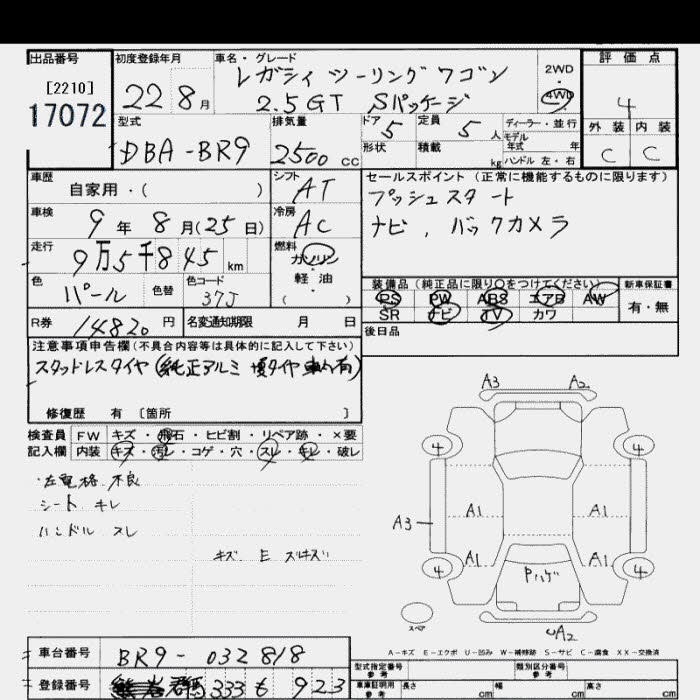 出品番号 初度登録年月 車名・グレード 評価点
[2210] 17072 22 8月 レガシィ ツーリングワゴン 2WD 4
2.5GT Sパッケージ 4WD
型式 排気量 ドア 5 定員 5人 ディーラー・並行 外装 内装
DBA-BR9 2500cc 形状 積載 kg モデル年式 年 C C
ハンドル 左・右
車歴 自家用・( ) シフト AT セールスポイント(正常に機能するものに限ります)
車検 9年8月(25日) 冷房 AC プッシュスタート
走行 9万5千845km 燃料 ガソリン ナビ,バックカメラ
軽油
( )
色 パール 色替 色コード 37J 装備品(純正品に限り○をつけてください) 新車保証書
PS PW ABS エアB AW 有・無
R券 14820円 名変通知期限 月 日 SR ナビ TV カワ
注意事項申告欄(不具合内容等は具体的に記入して下さい) 後日品
スタッドレスタイヤ(純正アルミ
修復歴 有 [箇所 ]
検査員 FW キズ・飛石・ヒビ割・リペア跡・×要
記入欄 内装 キズ・汚レ・コゲ・穴・スレ・キレ・破レ
A3 A2
・左電格不良 4 4
シート キレ A1 A1
ハンドル スレ A3
A1 A1
キズ E 4 Pハゲ 4
スペア A2
A-キズ E-エクボ U-凹み W-補修跡 S-サビ C-腐食 XX-交換済
車台番号 BR9-032818 型式指定番号 参考 類別区分番号 参考
登録番号 群馬 333 も 923 車庫証明用 参考 長さ cm 幅 cm 高さ cm